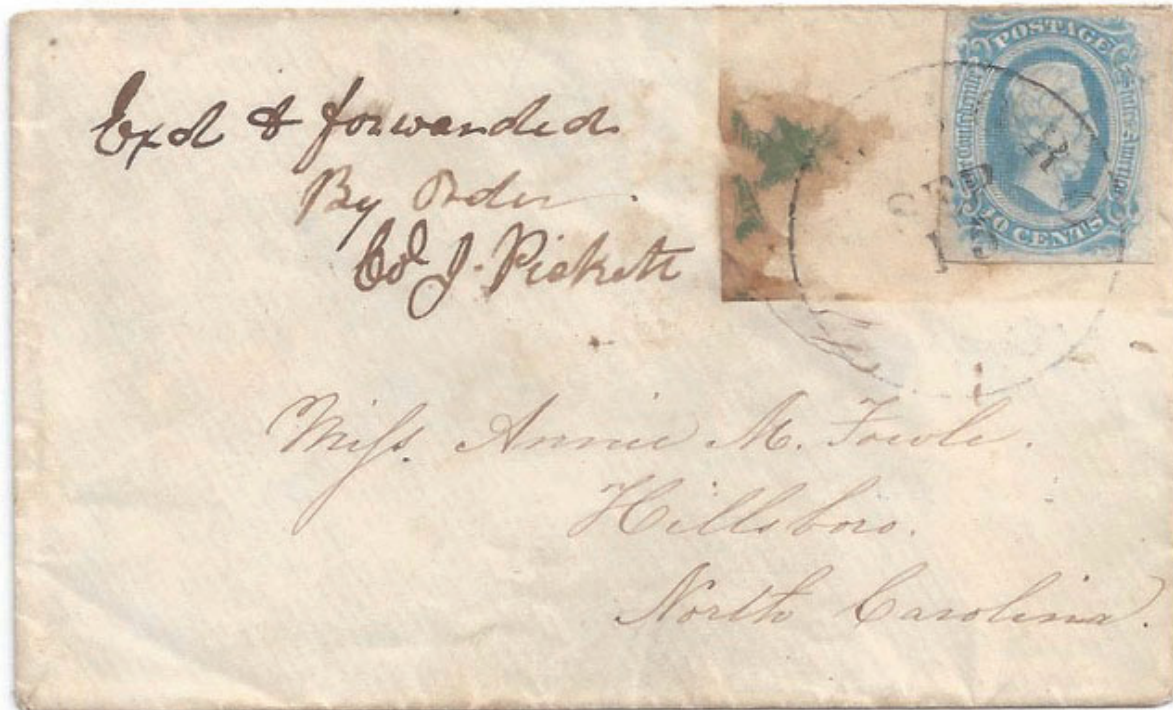 Exd & forwarded
By Order
Col J. Pickett
POSTAGE
The Confederate States of America
10 CENTS
SEP
15
Miss. Annie M. Fowle.
Hillsboro.
North Carolina.